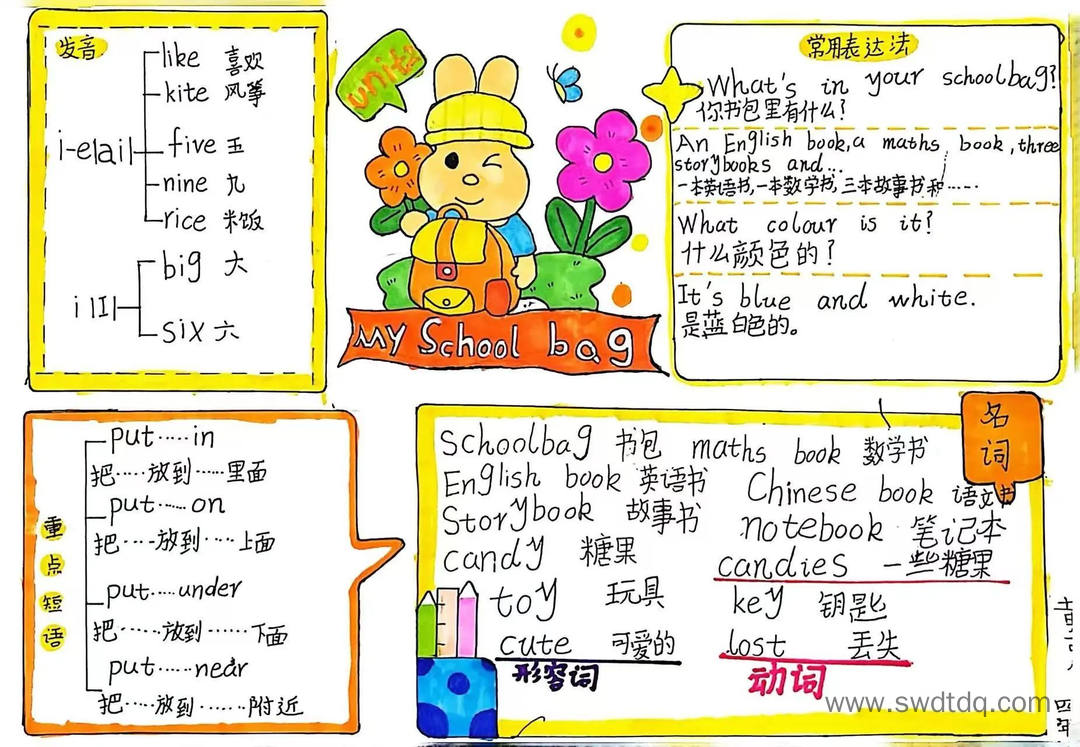 发音
i-e|ai|
like 喜欢
kite 风筝
five 五
nine 九
rice 米饭
i |I|
big 大
six 六
unit2
My School bag
常用表达法
What's in your schoolbag?
你书包里有什么?
An English book, a maths book, three
storybooks and...
一本英语书,一本数学书,三本故事书和......
What colour is it?
什么颜色的?
It's blue and white.
是蓝白色的。
重点短语
put.....in
把.....放到.....里面
put.....on
把.....放到.....上面
put.....under
把......放到......下面
put.....near
把.....放到......附近
名词
schoolbag 书包 maths book 数学书
English book 英语书 Chinese book 语文书
Storybook 故事书 notebook 笔记本
candy 糖果 candies 一些糖果
toy 玩具 key 钥匙
cute 可爱的 lost 丢失
形容词 动词
www.swdtdq.com